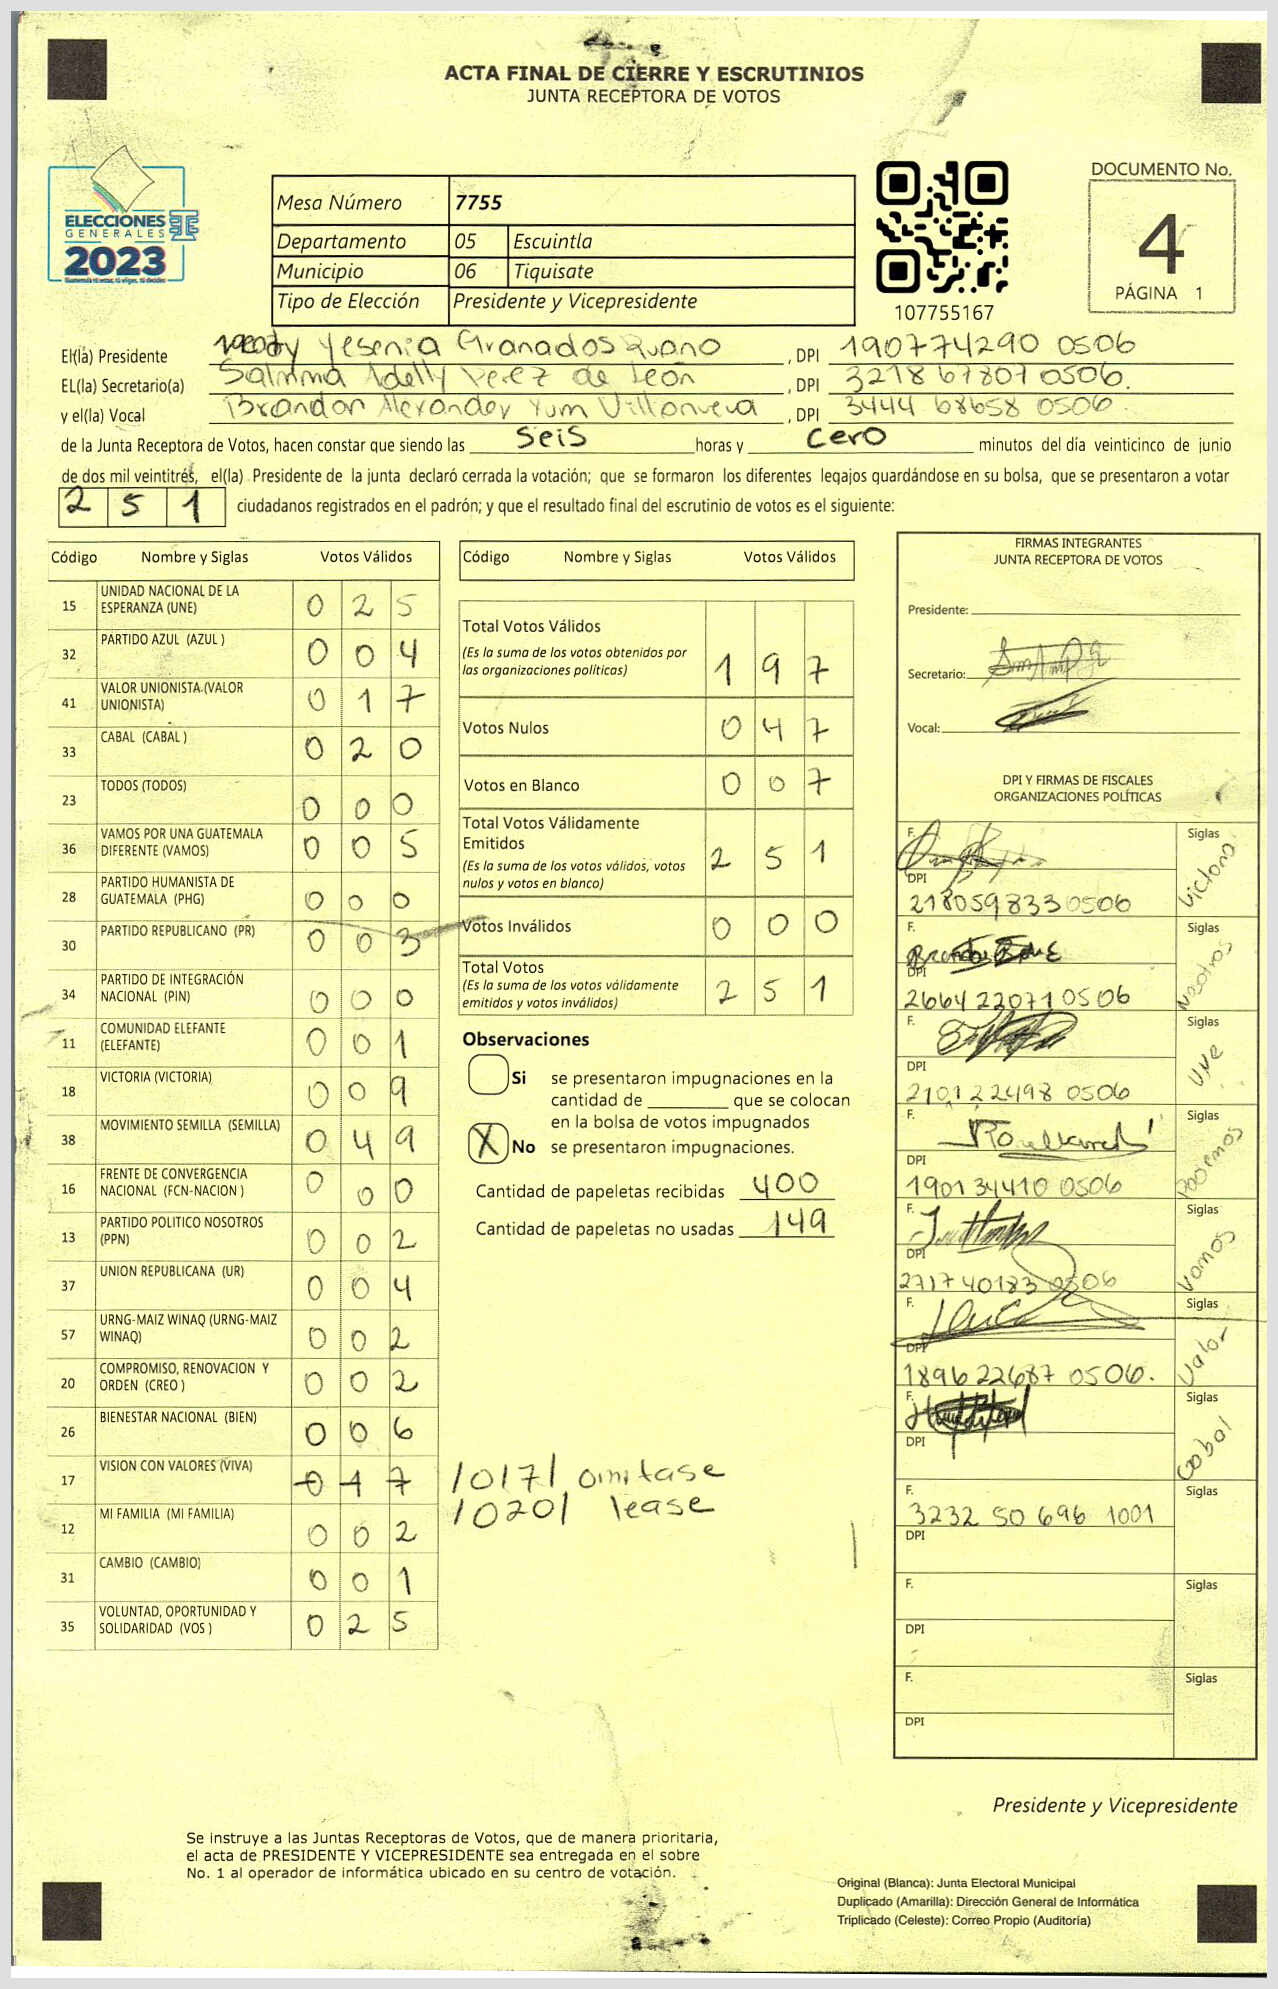 ACTA FINAL DE CIERRE Y ESCRUTINIOS
JUNTA RECEPTORA DE VOTOS
ELECCIONES
GENERALES
2023
Mesa Número 7755
Departamento 05 Escuintla
Municipio 06 Tiquisate
Tipo de Elección Presidente y Vicepresidente
107755167
DOCUMENTO No.
4
PÁGINA 1
El(la) Presidente Yesenia Granados Ruano , DPI 190774290 0506
EL(la) Secretario(a) Salmma Idelly Perez de León , DPI 3218 67807 0506.
y el(la) Vocal Brandon Alexander Yum Villanueva , DPI 3444 68658 0506
de la Junta Receptora de Votos, hacen constar que siendo las seis horas y cero minutos del día veinticinco de junio
de dos mil veintitrés, el(la) Presidente de la junta declaró cerrada la votación; que se formaron los diferentes legajos guardándose en su bolsa, que se presentaron a votar
2 5 1 ciudadanos registrados en el padrón; y que el resultado final del escrutinio de votos es el siguiente:
Código Nombre y Siglas Votos Válidos
15 UNIDAD NACIONAL DE LA ESPERANZA (UNE) 0 2 5
32 PARTIDO AZUL (AZUL ) 0 0 4
41 VALOR UNIONISTA (VALOR UNIONISTA) 0 1 7
33 CABAL (CABAL ) 0 2 0
23 TODOS (TODOS) 0 0 0
36 VAMOS POR UNA GUATEMALA DIFERENTE (VAMOS) 0 0 5
28 PARTIDO HUMANISTA DE GUATEMALA (PHG) 0 0 0
30 PARTIDO REPUBLICANO (PR) 0 0 3
34 PARTIDO DE INTEGRACIÓN NACIONAL (PIN) 0 0 0
11 COMUNIDAD ELEFANTE (ELEFANTE) 0 0 1
18 VICTORIA (VICTORIA) 0 0 9
38 MOVIMIENTO SEMILLA (SEMILLA) 0 4 9
16 FRENTE DE CONVERGENCIA NACIONAL (FCN-NACION ) 0 0 0
13 PARTIDO POLITICO NOSOTROS (PPN) 0 0 2
37 UNION REPUBLICANA (UR) 0 0 4
57 URNG-MAIZ WINAQ (URNG-MAIZ WINAQ) 0 0 2
20 COMPROMISO, RENOVACION Y ORDEN (CREO ) 0 0 2
26 BIENESTAR NACIONAL (BIEN) 0 0 6
17 VISION CON VALORES (VIVA) 0 1 7 /017/ omitase
/020/ lease
12 MI FAMILIA (MI FAMILIA) 0 0 2
31 CAMBIO (CAMBIO) 0 0 1
35 VOLUNTAD, OPORTUNIDAD Y SOLIDARIDAD (VOS ) 0 2 5
Código Nombre y Siglas Votos Válidos
Total Votos Válidos
(Es la suma de los votos obtenidos por las organizaciones políticas) 1 9 7
Votos Nulos 0 4 7
Votos en Blanco 0 0 7
Total Votos Válidamente Emitidos
(Es la suma de los votos válidos, votos nulos y votos en blanco) 2 5 1
Votos Inválidos 0 0 0
Total Votos
(Es la suma de los votos válidamente emitidos y votos inválidos) 2 5 1
Observaciones
Si se presentaron impugnaciones en la
cantidad de ________ que se colocan
en la bolsa de votos impugnados
X No se presentaron impugnaciones.
Cantidad de papeletas recibidas 400
Cantidad de papeletas no usadas 149
FIRMAS INTEGRANTES
JUNTA RECEPTORA DE VOTOS
Presidente:
Secretario:
Vocal:
DPI Y FIRMAS DE FISCALES
ORGANIZACIONES POLÍTICAS
F. Siglas Victoria
DPI
218059833 0506
F. Siglas Nosotros
DPI
2664 22071 0506
F. Siglas UNE
DPI
210122498 0506
F. Siglas Podemos
DPI
1901 34410 0506
F. Siglas Vamos
DPI
2717 40183 0506
F. Siglas Valor
DPI
1896 22687 0506.
F. Siglas Cabal
DPI
F. Siglas
3232 50 696 1001
DPI
F. Siglas
DPI
F. Siglas
DPI
Presidente y Vicepresidente
Se instruye a las Juntas Receptoras de Votos, que de manera prioritaria,
el acta de PRESIDENTE Y VICEPRESIDENTE sea entregada en el sobre
No. 1 al operador de informática ubicado en su centro de votación.
Original (Blanca): Junta Electoral Municipal
Duplicado (Amarilla): Dirección General de Informática
Triplicado (Celeste): Correo Propio (Auditoría)